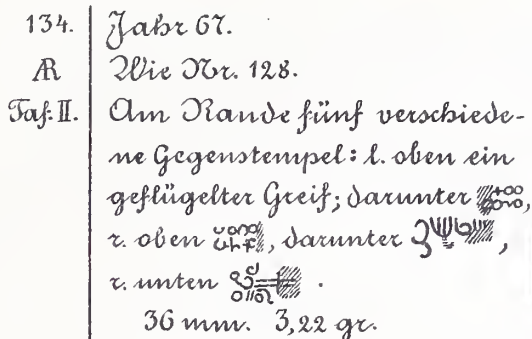 134. Jahr 67.
AR Wie Nr. 128.
Taf. II. Am Rande fünf verschiede-
ne Gegenstempel: l. oben ein
geflügelter Greif; darunter ,
r. oben , darunter ,
r. unten .
36 mm. 3,22 gr.